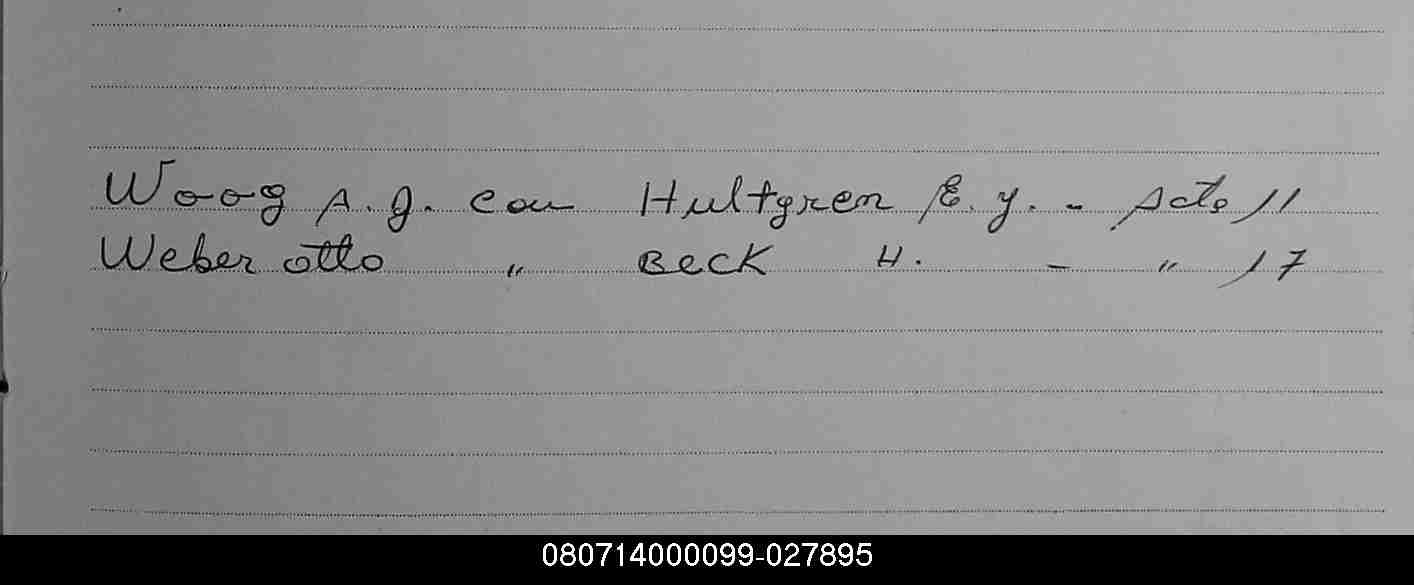 Woog A. J. con Hultgren E. Y. - Acta 11
Weber otto " Beck H. - " 17
080714000099-027895